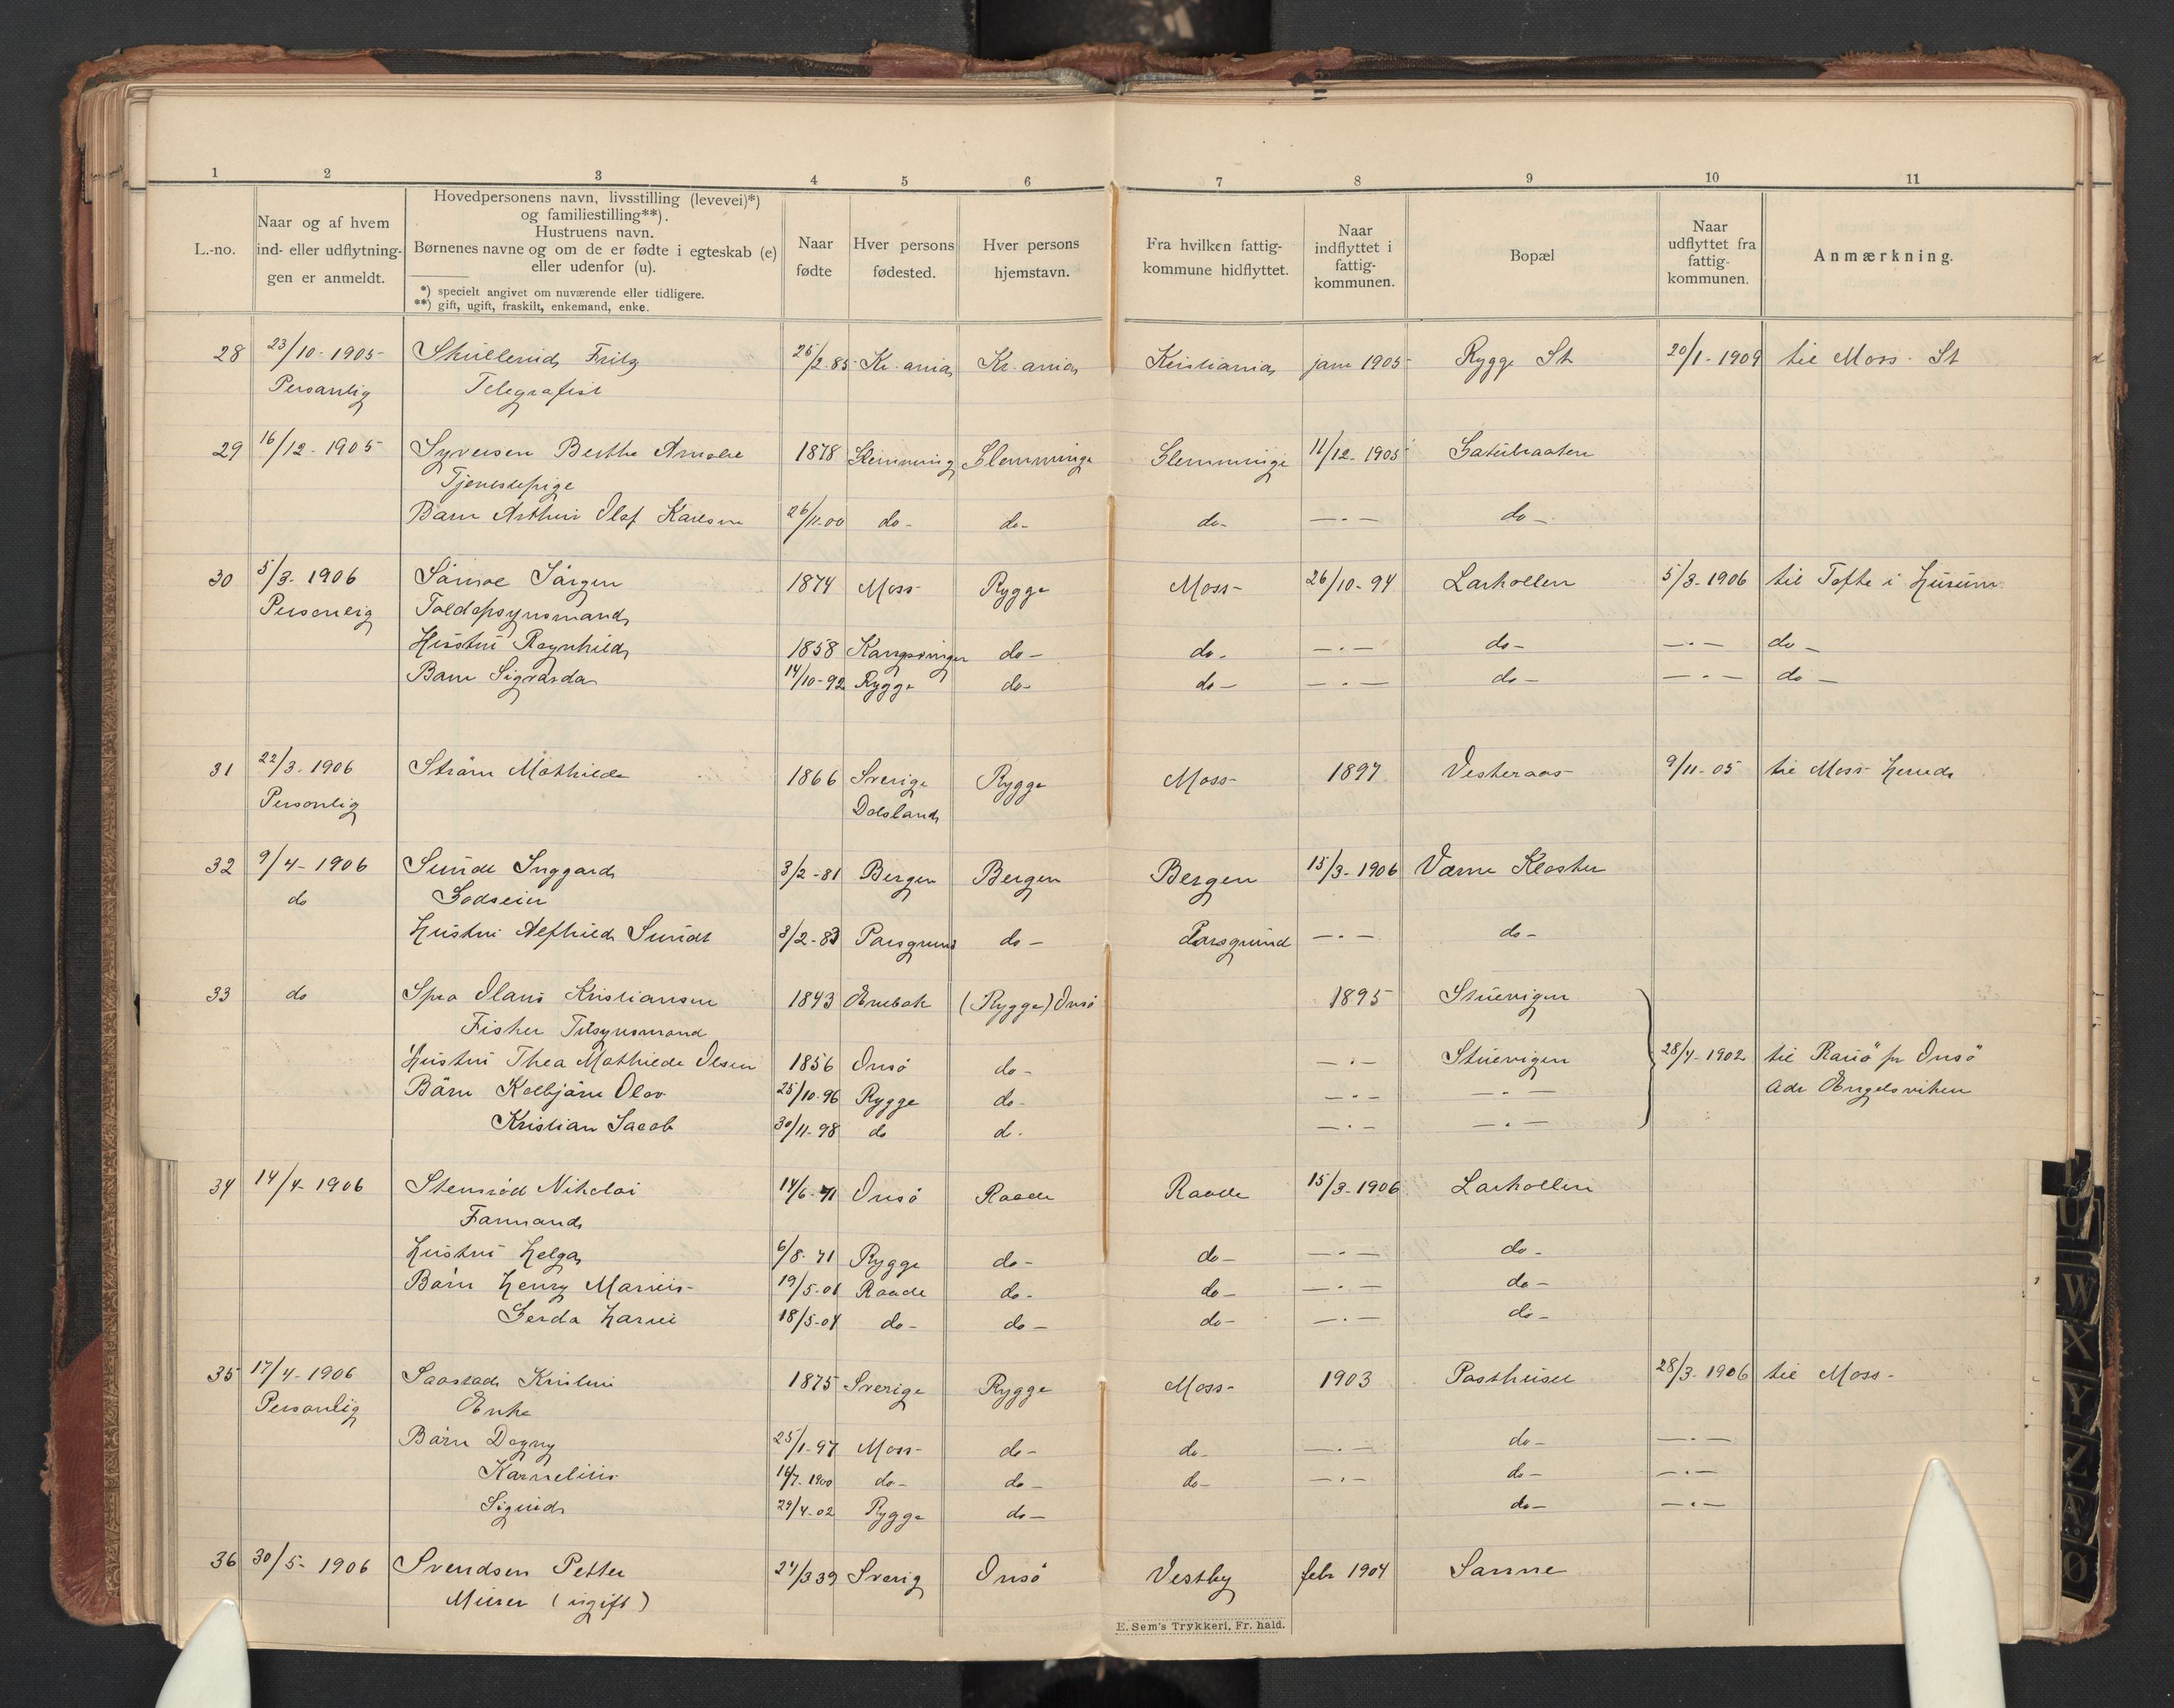 1 2 3 4 5 6 7 8 9 10 11
L.-no.
Naar og af hvem
ind- eller udflytnin-
gen er anmeldt.
Hovedpersonens navn, livsstilling (levevei)*)
og familiestilling**).
Hustruens navn.
Børnenes navne og om de er fødte i egteskab (e)
eller udenfor (u).
*) specielt angivet om nuværende eller tidligere.
**) gift, ugift, fraskilt, enkemand, enke.
Naar
fødte
Hver persons
fødested.
Hver persons
hjemstavn.
Fra hvilken fattig-
kommune hidflyttet.
Naar
indflyttet i
fattig-
kommunen.
Bopæl
Naar
udflyttet fra
fattig-
kommunen.
Anmærkning.
28 23/10-1905 Fritz 25/2-85 Kr.ania Kr.ania Kristiania jan 1905 Rygge St 20/1-1909 til Moss St
Personlig Telegrafist
29 16/12-1905 Syversen Berthe 1878 Glemminge Glemminge 11/12-1905
Tjenestepige
Barn Arthur Olaf Karlsen 26/11-00 do- do- do- —"— do-
30 5/3-1906 Jørgen 1874 Moss Rygge Moss- 26/10-94 Larkollen 5/3-1906 til Tofte i Hurum
Personlig Toldopsynsmand
Hustru Ragnhild 1858 do- do- —"— do- —"— do-
Barn 14/10-92 Rygge do- do- —"— do- —"— do-
31 22/3-1906 Strøm Mathilde 1866 Sverige Rygge Moss- 1897 Vesteraas 9/11-05 til Moss Herred
Personlig Dalsland
32 9/4-1906 Sundt Inggard 3/2-81 Bergen Bergen Bergen 15/3-1906 Værne Kloster
do Godseier
Hustru Alfhild Sundt 3/2-83 Porsgrund do- Porsgrund —"— do-
33 do Olaus Kristiansen 1843 Enebak (Rygge) Onsø 1895 Støtvigen
Fisker Tilsynsmand
Hustru Thea Mathilde Olsen 1856 Onsø do- —"— Støtvigen 28/4-1902 til Rauø pr Onsø
Børn Kolbjørn Olav 25/10-96 Rygge do- —"— —"— Adr Engelsviken
Kristian Jacob 30/11-98 do d. —"— —"—
34 14/4-1906 Stensrød Nikolai 14/6-71 Onsø Raade Raade 15/3-1906 Larkollen
Formand
Hustru Helga 6/8-71 Rygge do- do- —"— do-
Børn Henry Marius 19/5-01 Raade do- do- —"— do-
Gerda 18/5-04 do- do- do- —"— do-
35 17/4-1906 Saastad 1875 Sverige Rygge Moss- 1903 Posthuset 28/3-1906 til Moss-
Personlig Enke
Børn Dagny 25/1-97 Moss- do- do- —"— do- —"—
Kornelius 14/7-1900 do- do- do- —"— do- —"—
Sigurd 29/4-02 Rygge do- do- —"—
36 30/5-1906 Svendsen Petter 24/3 39 Sverig Onsø Vestby febr 1904 Sanne
Murer (ugift)
E. Sem's Trykkeri, Fr. hald.
U
W
X
Y
Z
Æ
Ø